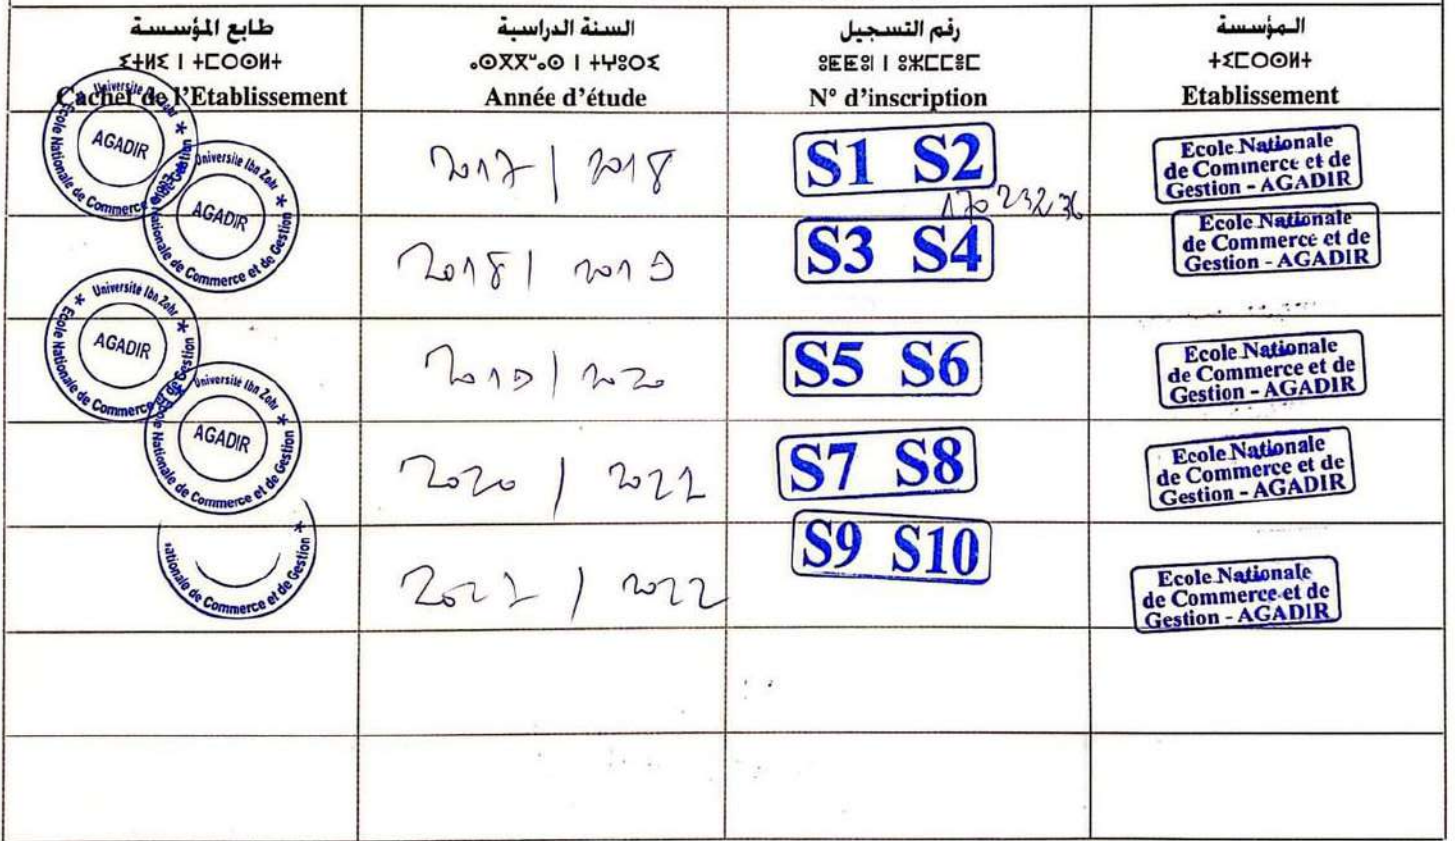 طابع المؤسسة
ⵉⵜⵍⵉ ⵏ ⵜⵎⵔⵙⵍⵜ
Cachet de l'Etablissement
السنة الدراسية
ⴰⵙⴳⴳⵯⴰⵙ ⵏ ⵜⵖⵓⵔⵉ
Année d'étude
رقم التسجيل
ⵓⵟⵟⵓⵏ ⵏ ⵓⵣⵎⵎⵓⵎ
N° d'inscription
المؤسسة
ⵜⵉⵎⵔⵙⵍⵜ
Etablissement
Université Ibn Zohr
Ecole Nationale de Commerce et de Gestion
AGADIR
2017 | 2018
S1 S2
17023236
Ecole Nationale
de Commerce et de
Gestion - AGADIR
Université Ibn Zohr
Nationale de Commerce et de Gestion
AGADIR
2018 | 2019
S3 S4
Ecole Nationale
de Commerce et de
Gestion - AGADIR
Université Ibn Zohr
Ecole Nationale de Commerce et de Gestion
AGADIR
2019 | 2020
S5 S6
Ecole Nationale
de Commerce et de
Gestion - AGADIR
Université Ibn Zohr
Ecole Nationale de Commerce et de Gestion
AGADIR
2020 / 2021
S7 S8
Ecole Nationale
de Commerce et de
Gestion - AGADIR
ationale de Commerce et de Gestion
2021 / 2022
S9 S10
Ecole Nationale
de Commerce et de
Gestion - AGADIR